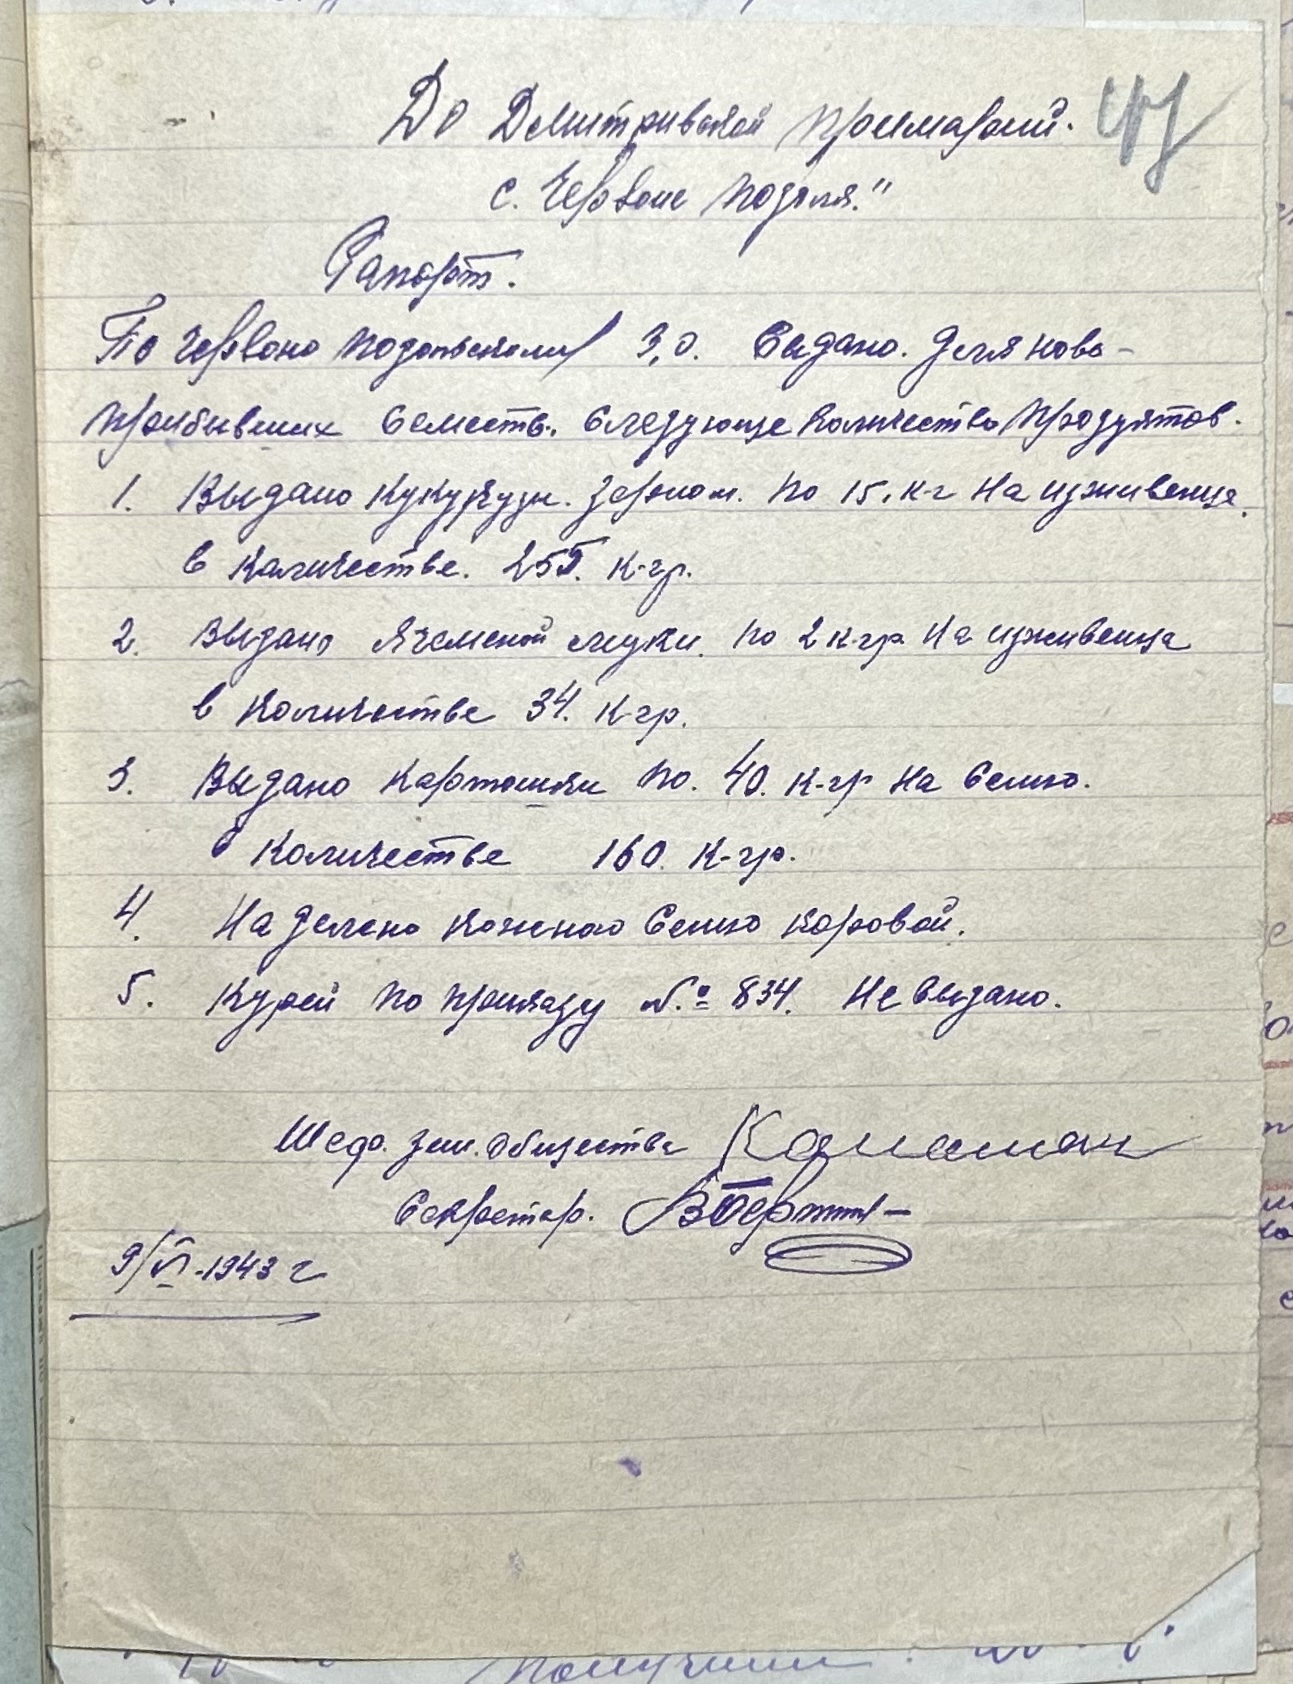 До Дмитривской примарий. 47
с. Червоне Поділля."
Рапорт.
По Червоно Подольскому З.О. Выдано. Для ново-
прибывших семеств. Следующе Количество Продуктов.
1. Выдано Кукурузы. Зерном. по 15. к-г на иживенца.
в количестве. 255. к-гр.
2. Выдано Ячменой муки. по 2 к-гр. на иживенца
в количестве 34. к-гр.
3. Выдано Картошки по. 40. к-гр на семю.
в количестве 160. к-гр.
4. Наделено каждаю семю коровой.
5. Курей по приказу №. 834. Не выдано.
Шеф. зем. общества
Секретар.
9/VI-1943 г
Получили